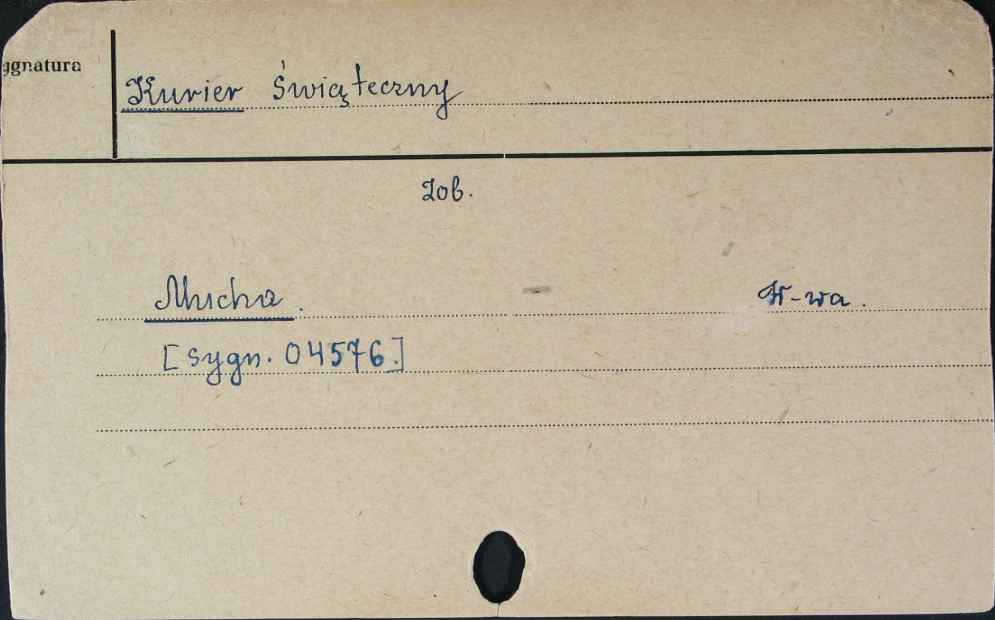 ygnatura
Kurier Świąteczny
Zob.
Mucha. - W-wa.
[sygn. 04576.]